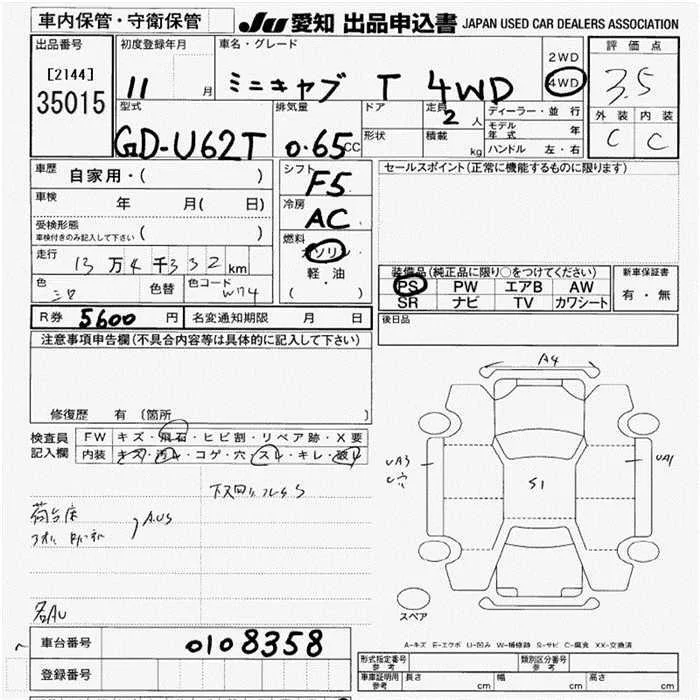 車内保管・守衛保管
JU 愛知 出品申込書 JAPAN USED CAR DEALERS ASSOCIATION
出品番号
[2144]
35015
初度登録年月
11 月
車名・グレード
ミニキャブ T 4WD
2WD
4WD
評価点
3.5
外装 内装
C C
型式
GD-U62T
排気量
0.65 CC
ドア
形状
定員
2 人
積載
kg
ディーラー・並行
モデル年式 年
ハンドル 左・右
車歴 自家用・( )
車検 年 月( 日)
受検形態
車検付きのみ記入して下さい ( )
走行 13万4千332km
色 シロ 色替 色コード W74
シフト
F5
冷房
AC
燃料
ガソリン
軽油
( ・ )
セールスポイント(正常に機能するものに限ります)
装備品(純正品に限り○をつけてください)
PS PW エアB AW
SR ナビ TV カワシート
新車保証書
有・無
R券 5600 円 名変通知期限 月 日
後日品
注意事項申告欄(不具合内容等は具体的に記入して下さい)
修復歴 有 〔箇所 〕
検査員 FW キズ・飛石・ヒビ割・リペア跡・X要
記入欄 内装 キズ・汚れ・コゲ・穴・スレ・キレ・破れ
下スロリフレcs
荷台床
AUS
各AU
A4
UA3
U穴
S1
UA1
スペア
A-キズ E-エクボ U-凹み W-補修跡 S-サビ C-腐食 XX-交換済
車台番号 0108358
登録番号
形式指定番号参考 類別区分番号参考
車庫証明用参考 長さ cm 幅 cm 高さ cm